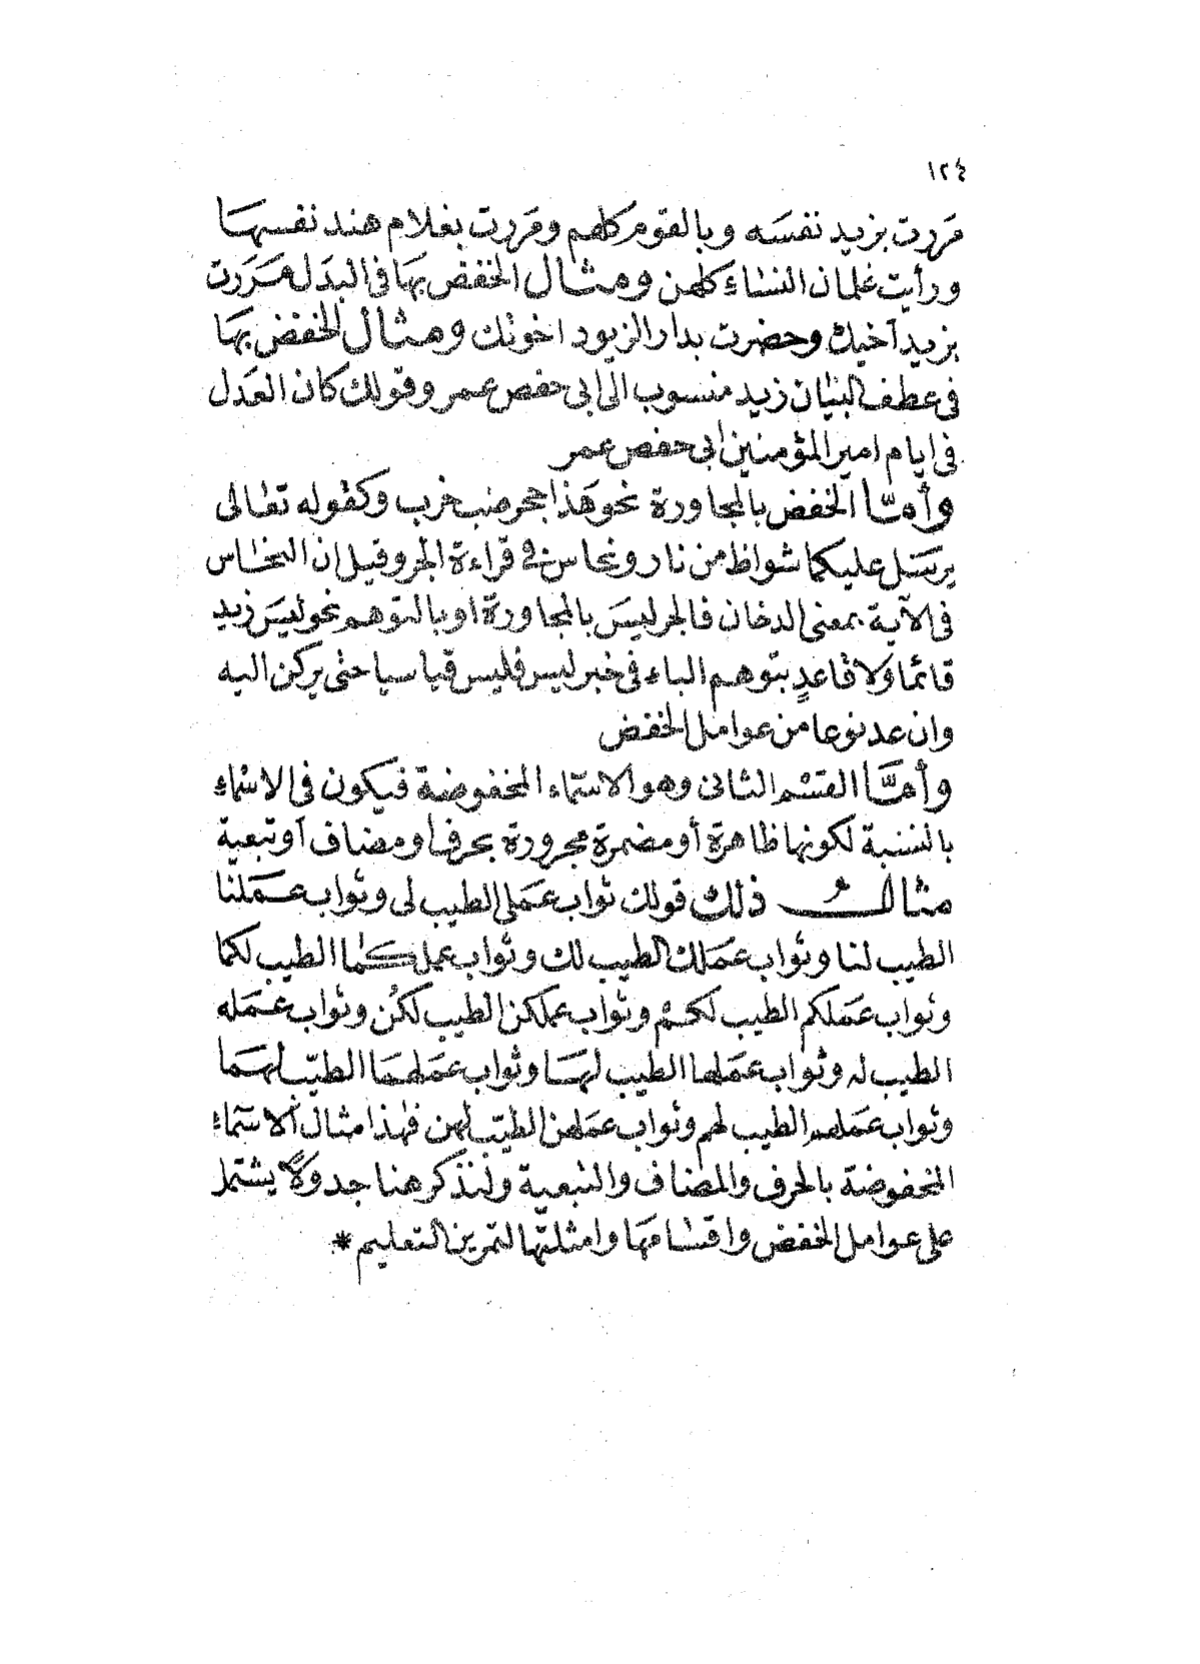 ١٢٤
مَررت بزيد نفسَه وبالقوم كلهم ومَررت بغلام هند نفسهَا
ورأيت غلمان النسَاءِ كلهن ومثال الخفض بهَا فى البدَل مَرَرت
بزيد آخيك وحضرت بدار الزيود اخوتك ومثال الخفض بهَا
فى عطف البيَان زيد منسوب الى ابى حفص عمر وقولك كان العَدل
فى ايام امير المؤمنين ابى حفص عمر
وأمّا الخفض بالمجاورة نحو هَذا جحر ضب خرب وكقوله تعَالى
يرسَل عليكما شواظ من نار ونحاس فى قراءة الجر وقيل ان النحَاس
فى الآية بمعنى الدخان فالجر ليسَ بالمجاورة او بالتوهم نحو ليسَ زيد
قائما وَلا قاعدٍ بتوهم الباء فى خبر ليس فليس قياسيا حتى يركن اليه
وان عد نوعا من عوامل الخفض
وأمَّا القسْم الثانى وهو الاسمَاء المخفوضة فيكون فى الاسْماءِ
بالنسبة لكونها ظاهرة أو مضمرة مجرورة بحرف او مضاف آو تبعية
مثالُ ذلك قولك ثواب عَملى الطيب لى وثواب عَمَلنا
الطيب لنا وثواب عمَلك الطيب لك وثواب عملكما الطيب لكما
وثواب عَمَلكم الطيب لكمْ وثواب عملكن الطيب لكُن وثواب عمَله
الطيب له وثواب عمَلها الطيب لهَا وثواب عمَلهمَا الطيّب لهمَا
وثواب عمَلهم الطيب لهم وثواب عملهن الطيّب لهن فهٰذا مثال الاسَماءِ
المخفوضة بالحرف والمضاف والتبعية ولنذكر هنا جدولاً يشتمل
على عوامل الخفض واقسَامهَا وامثلتها لتمرين التعليم *